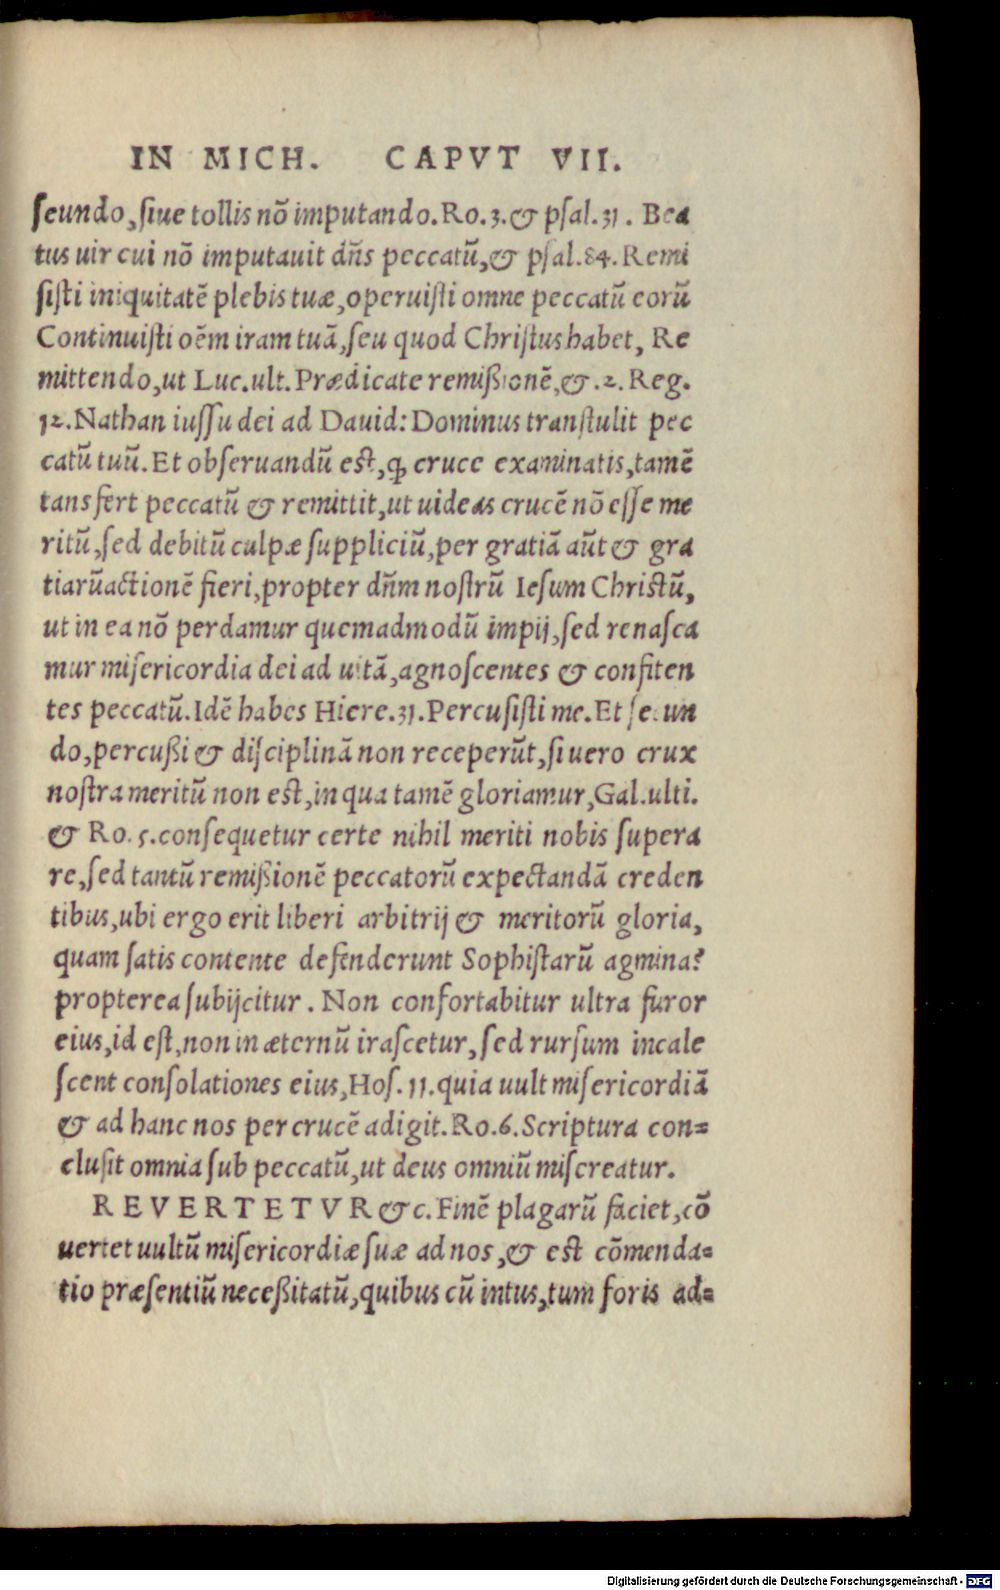 IN MICH. CAPVT VII.
ſeundo, ſiue tollis nō imputando. Ro. 3. & pſal. 31. Bea
tus uir cui nō imputauit dn̄s peccatū, & pſal. 84. Remi
ſiſti iniquitatē plebis tuæ, operuiſti omne peccatū eorū
Continuiſti oēm iram tuā, ſeu quod Chriſtus habet, Re
mittendo, ut Luc. ult. Prædicate remißionē, &. 2. Reg.
12. Nathan iuſſu dei ad Dauid: Dominus tranſtulit pec
catū tuū. Et obſeruandū est, ꝙ cruce examinatis, tamē
tansfert peccatū & remittit, ut uideas crucē nō eſſe me
ritū, ſed debitū culpæ ſuppliciū, per gratiā aūt & gra
tiarūactionē fieri, propter dn̄m noſtrū Ieſum Chriſtū,
ut in ea nō perdamur quemadmodū impij, ſed renaſca
mur miſericordia dei ad uitā, agnoſcentes & confiten
tes peccatū. Idē habes Hiere. 31. Percuſiſti me. Et ſecun
do, percußi & diſciplinā non receperūt, ſi uero crux
noſtra meritū non est, in qua tamē gloriamur, Gal. ulti.
& Ro. 5. conſequetur certe nihil meriti nobis ſupera
re, ſed tantū remißionē peccatorū expectandā creden
tibus, ubi ergo erit liberi arbitrij & meritorū gloria,
quam ſatis contente defenderunt Sophiſtarū agmina?
propterea ſubijcitur. Non confortabitur ultra furor
eius, id eſt, non in æternū iraſcetur, ſed rurſum incale
ſcent conſolationes eius, Hoſ. 11. quia uult miſericordiā
& ad hanc nos per crucē adigit. Ro. 6. Scriptura con=
cluſit omnia ſub peccatū, ut deus omniū miſereatur.
REVERTETVR &c. Finē plagarū faciet, cō
uertet uultū miſericordiæ ſuæ ad nos, & est cōmenda=
tio præſentiū neceßitatū, quibus cū intus, tum foris ad=
Digitalisierung gefördert durch die Deutsche Forschungsgemeinschaft - DFG